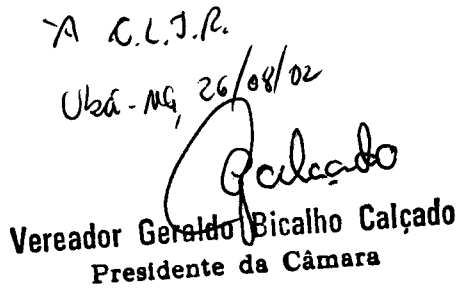 À C.L.J.R.
Ubá-MG, 26/08/02
Calçado
Vereador Geraldo Bicalho Calçado
Presidente da Câmara